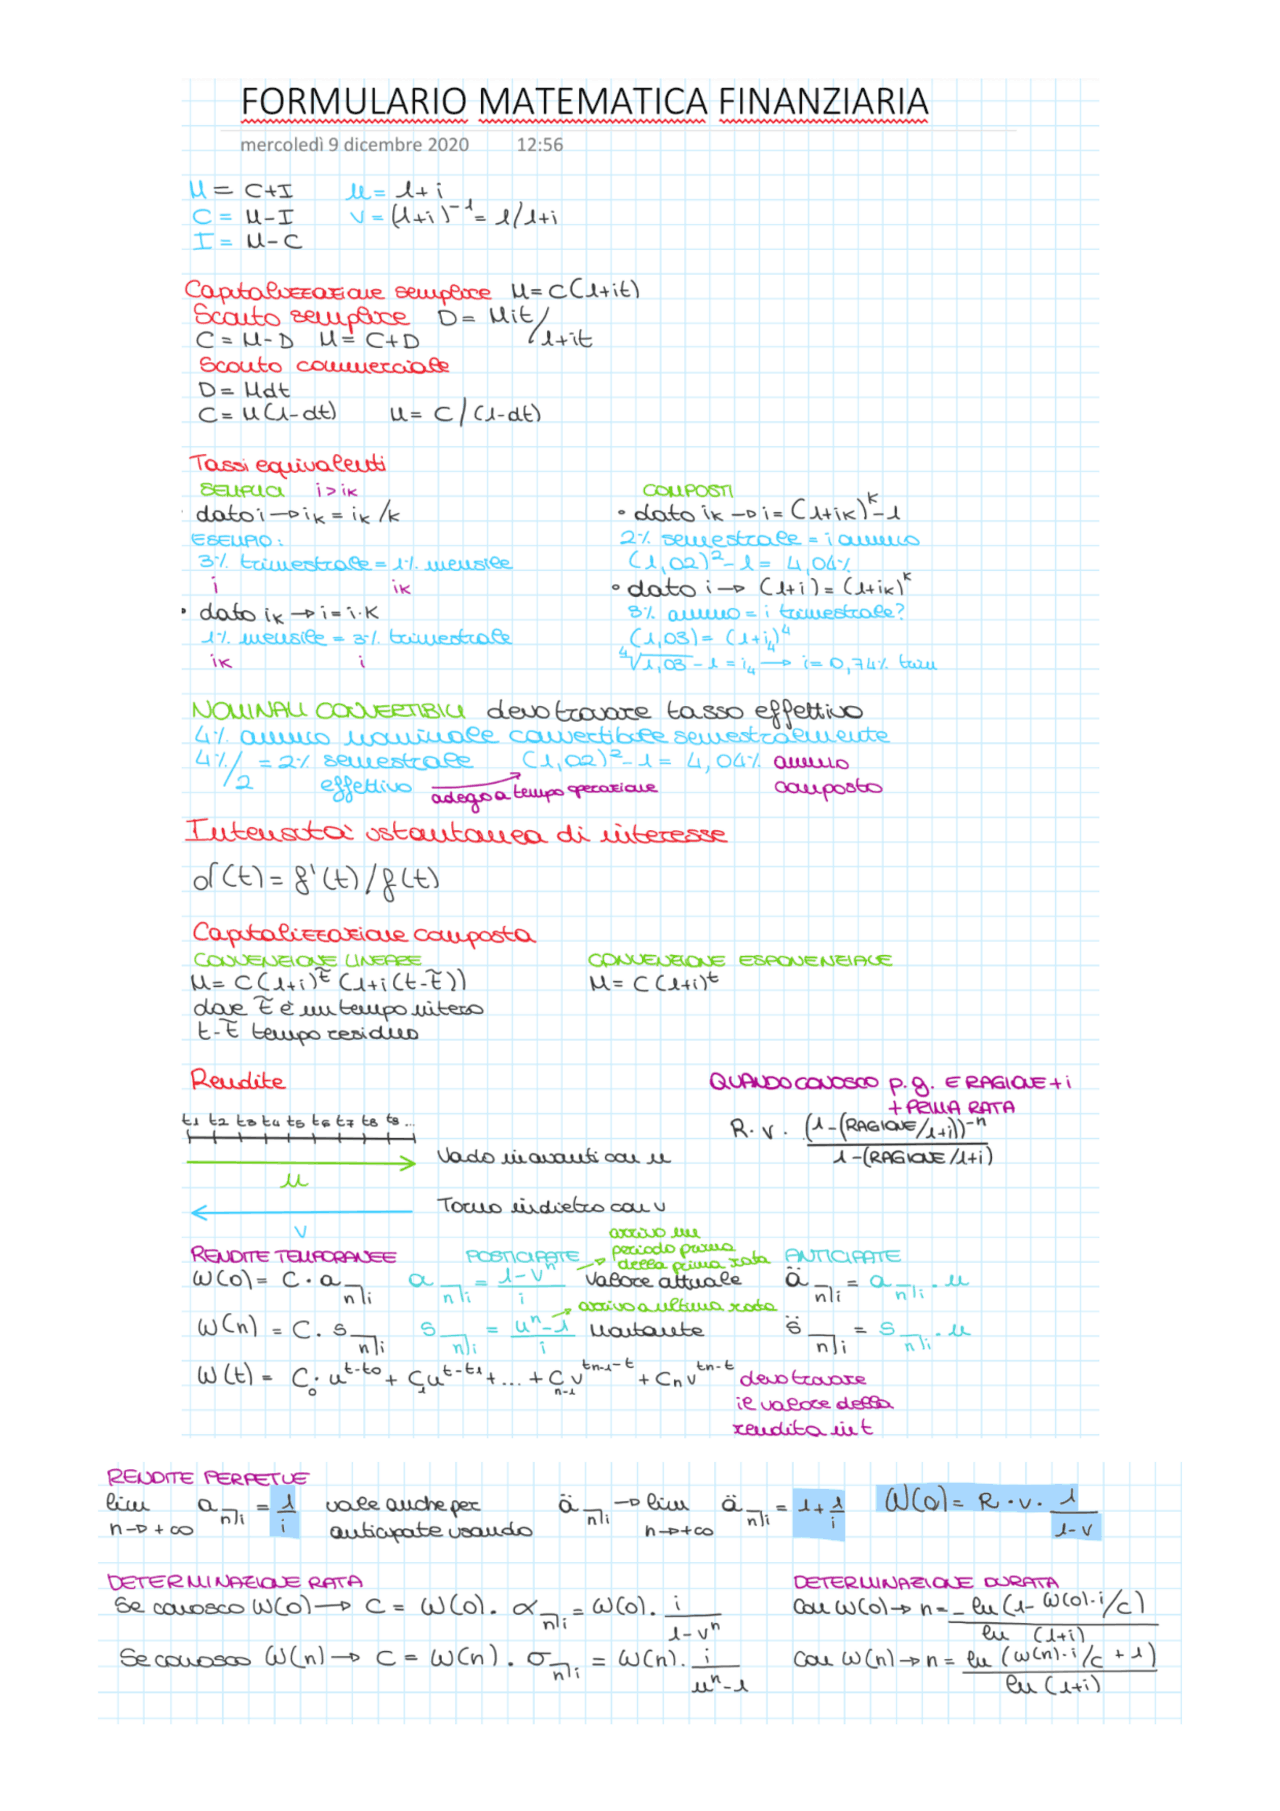 FORMULARIO MATEMATICA FINANZIARIA
mercoledì 9 dicembre 2020 12:56
M = C+I u = 1+i
C = M-I v = (1+i)^-1 = 1/1+i
I = M-C
Capitalizzazione semplice M = C(1+it)
Sconto semplice D = Mit/1+it
C = M-D M = C+D
Sconto commerciale
D = Mdt
C = M(1-dt) M = C/(1-dt)
Tassi equivalenti
SEMPLICI i > ik
• dato i → ik = ik/k
ESEMPIO:
3% trimestrale = 1% mensile
i ik
• dato ik → i = i·K
1% mensile = 3% trimestrale
ik i
COMPOSTI
• dato ik → i = (1+ik)^k - 1
2% semestrale = i annuo
(1,02)^2 - 1 = 4,04%
• dato i → (1+i) = (1+ik)^k
3% annuo = i trimestrale?
(1,03) = (1+i4)^4
⁴√1,03 - 1 = i4 → i = 0,74% trim
NOMINALI CONVERTIBILI devo trovare tasso effettivo
4% annuo nominale convertibile semestralmente
4%/2 = 2% semestrale (1,02)^2 - 1 = 4,04% annuo
effettivo adego a tempo operazione composto
Intensità istantanea di interesse
δ(t) = f'(t)/f(t)
Capitalizzazione composta
CONVENZIONE LINEARE CONVENZIONE ESPONENZIALE
M = C(1+i)^t̃ (1+i(t-t̃)) M = C(1+i)^t
dove t̃ è un tempo intero
t-t̃ tempo residuo
Rendite
QUANDO CONOSCO p.g. E RAGIONE + i
+ PRIMA RATA
t1 t2 t3 t4 t5 t6 t7 t8 t9 ...
R·v· (1-(RAGIONE/1+i))^-n / 1-(RAGIONE/1+i)
Vado in avanti con u
u
Torno indietro con v
v
RENDITE TEMPORANEE POSTICIPATE ANTICIPATE
arrivo un periodo prima della prima rata
W(0) = C · a n⌉i a n⌉i = 1-v^n / i Valore attuale ä n⌉i = a n⌉i · u
arrivo a ultima rata
W(n) = C · s n⌉i s n⌉i = u^n-1 / i Montante s̈ n⌉i = s n⌉i · u
W(t) = C0·u^t-t0 + C1u^t-t1 + ... + Cn-1 v^tn-1-t + Cn v^tn-t devo trovare
il valore della
rendita in t
RENDITE PERPETUE
lim n→+∞ a n⌉i = 1/i vale anche per anticipate usando ä n⌉i → lim n→+∞ ä n⌉i = 1+1/i W(0) = R·v· 1/1-v
DETERMINAZIONE RATA
Se conosco W(0) → C = W(0) · α n⌉i = W(0) · i / 1-v^n
Se conosco W(n) → C = W(n) · σ n⌉i = W(n) · i / u^n-1
DETERMINAZIONE DURATA
Con W(0) → n = - ln(1- W(0)·i/C) / ln (1+i)
Con W(n) → n = ln (W(n)·i/C + 1) / ln (1+i)